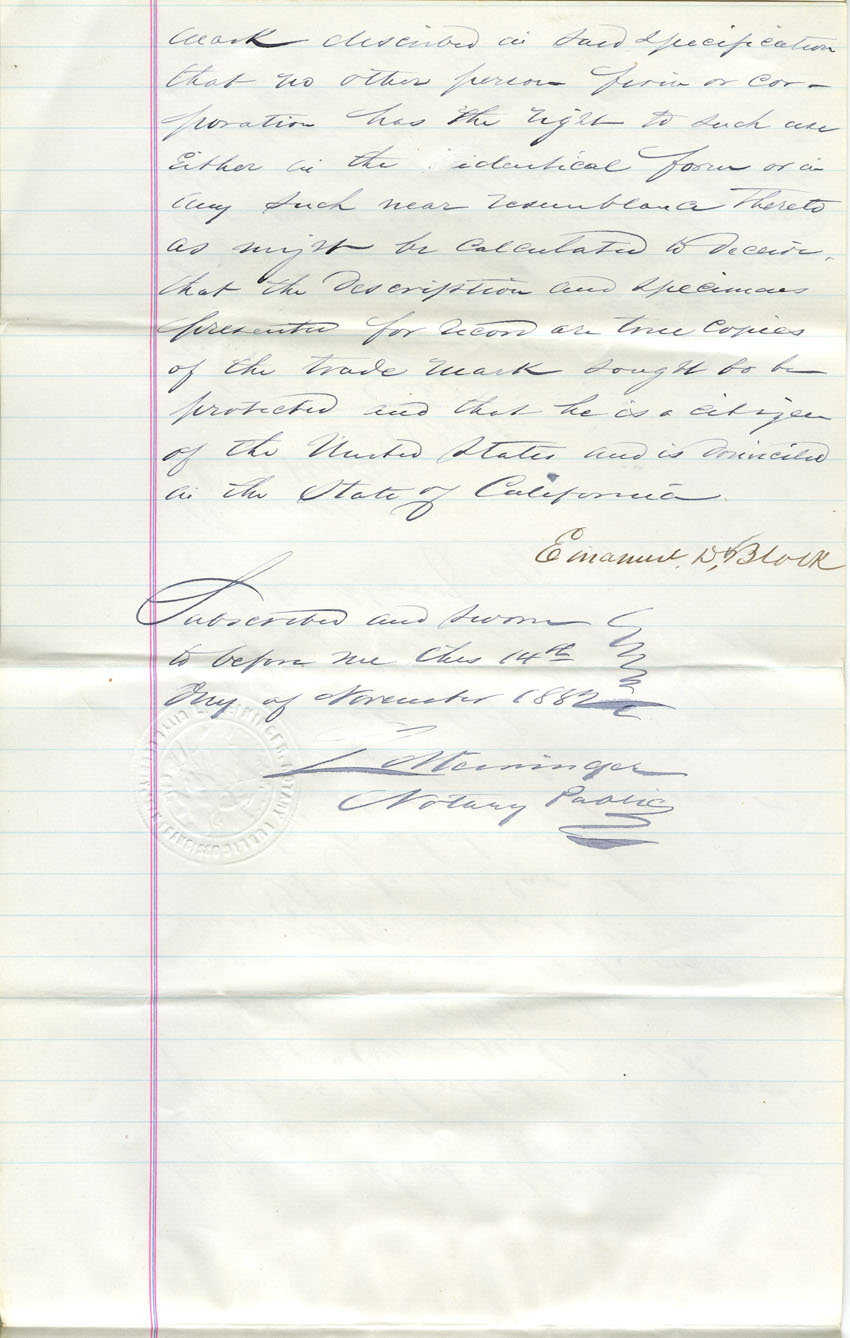 mark described in said specification
that no other person firm or cor-
poration has the right to such use
Either in the identical form or in
any such near resemblance Thereto
as might be calculated to deceive,
that the Description and specimens
presented for record are true Copies
of the trade mark sought to be
protected and that he is a citizen
of the United States and is domiciled
in the State of California.
Emanuel D, Block
Subscribed and sworn
to before me this 14th
Day of November 188
Meininger
Notary Public